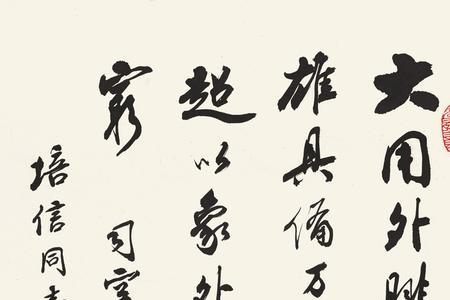 大用外腓
雄具備万
超以象外
窮 司空
培信同志